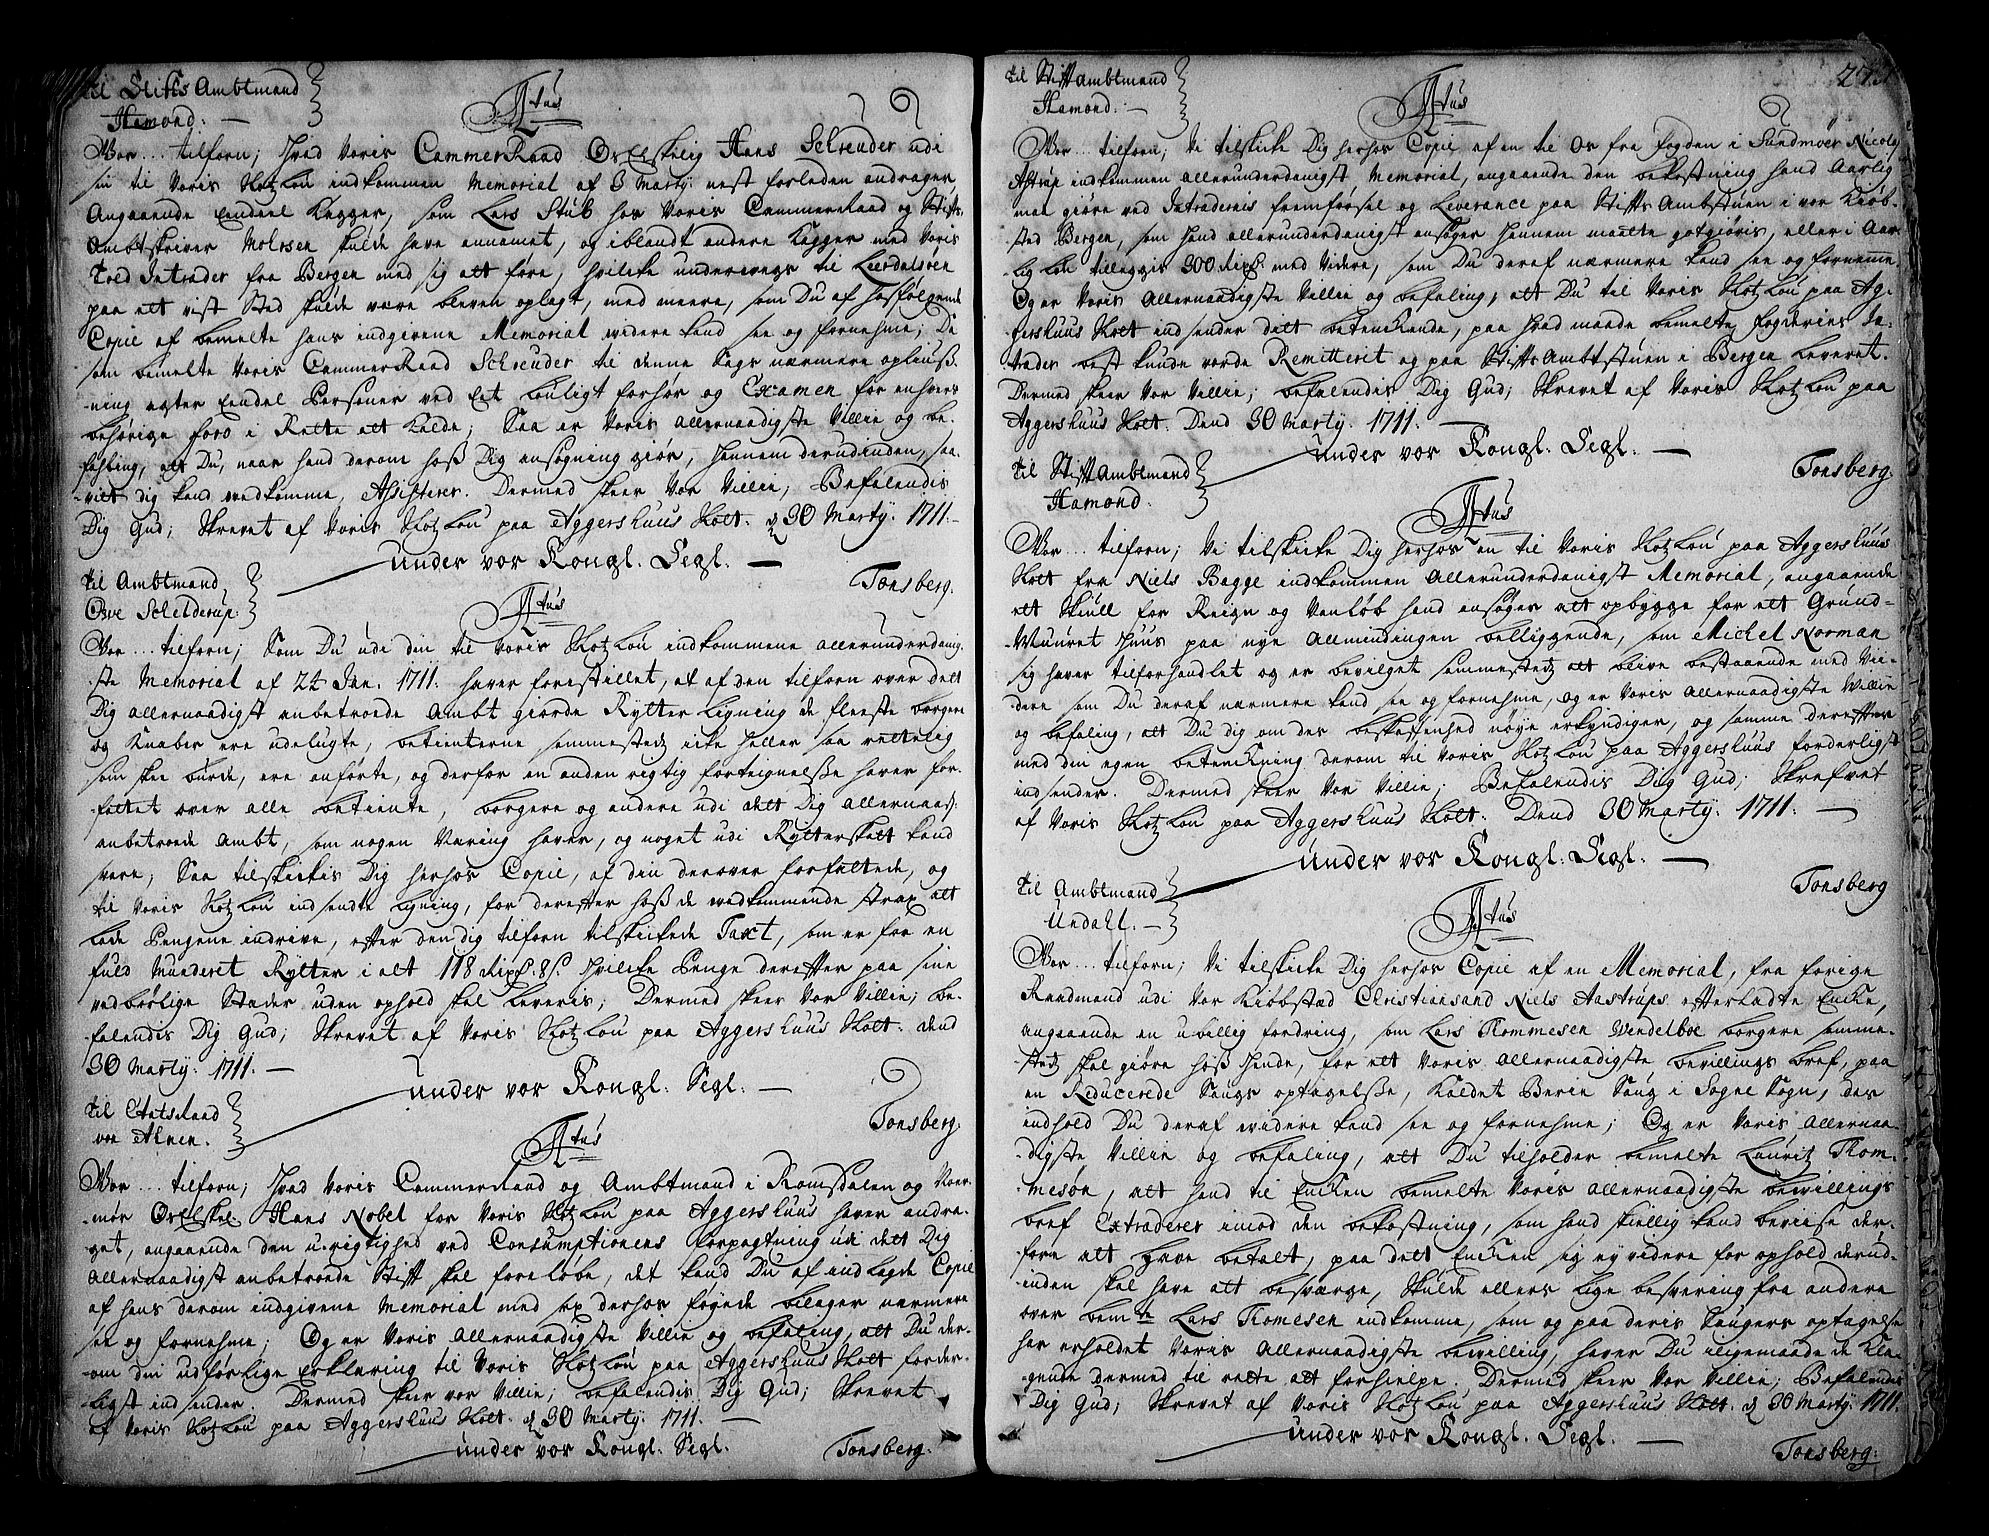 til Stifts Ambtmand
Hamond: —
Atus
Vor... tilforn; Hvad Voris CammerRaad OsElskelig Hans Schreuder udi
sin til Voris Slotzlou indkommen Memorial af 3 Martÿ nest forleden andrager
Angaaende Eendeel Kagger, som Lars Stub hos Voris CammerRaad og Stifts
Ambtskriver Mohrsen skulde have annamet, og iblandt andere Kagger med Voris
Told Intrader fra Bergen med sig att føre, hvilcke underveigs til Leerdalsøen
paa ett vist Sted skulde være bleven oplagt, med meere, som Du af hosfølgende
Copie af bemelte hans indgivene Memorial videre kand see og fornehme; Da
som bemelte Voris CammerRaad Schreuder til denne Sags nærmere opliuß-
-ning agter Eendel Persöner ved Eet Louligt forhör og Examen for enhvers
behörige foro i Rette att kalde; Saa er Voris allernaadigste Villie og be-
fahling, att Du, naar hand derom hoß Dig ansøgning giör, hannem derudinden, saa-
-vit dig kand vedkomme, Assisterer. Dermed skeer Vor Villie, Befalendis
Dig Gud; Skrevet af Voris Slotzlou paa Aggershuus Slott. d 30 Martÿ. 1711.
under vor Kongl. Segl. —
Tonsberg.
til Ambtmand
Ove Schelderup.
Atus
Vor... tilforn; Som Du udi din til Voris Slotzlou indkommene allerunderdanig-
-ste Memorial af 24 Jan. 1711. haver forestillet, at af den tilforn over dett
Dig allernaadigst anbetroede Ambt giorde Rytter Ligning de fleeste borgere
og Knaber ere udelugte, betienterne sammestedz icke heller saa rettelig
som skee burde, ere anförte, og derfor en anden rigtig forteignelße haver for-
-fattet over alle betiente, borgere og andere udi dett Dig allernaad:
anbetroede Ambt, som nogen Næring haver, og noget udi Rytterskatt kand
svare; Saa tilskickis Dig herhos Copie, af din derover forfattede, og
til Voris Slotzlou indsendte Ligning, for derefter hoß de vedkommende strax att
lade Pengene indrive, efter den dig tilforn tilskickede Taxt, som er for en
fuld Munderet Rytter i alt 118 Rixd. 8 s. Hvilcke Penge derefter paa sine
vedbørlige Stæder uden ophold skal Leveris; Dermed skeer Vor Villie; be-
falendis Dig Gud; Skrevet af Voris Slotzlou paa Aggershuus Slott: dend
30 Martÿ. 1711. —
under vor Kongl. Segl. —
Tonsberg.
til EtatsRaad
von Ahnen.
Atus
Vor... tilforn; Hvad Voris CammerRaad og Ambtmand i Romsdalen og Noer-
-mør OsElskel. Hans Nobel for Voris Slotzlou paa Aggershuus haver andra-
get, angaaende den u-rigtighed ved Consumptionens forpagtning udi dett Dig
allernaadigst anbetroede Stift skal foreløbe, det kand Du af indlagde Copie
af hans derom indgivene Memorial med sex derhos föyede bilager nærmere
see og fornehme; Og er Voris allernaadigste Villie og befaling, att Du der-
-om din udførlige Erklæring til Voris Slotzlou paa Aggershuus Slott forder-
-ligst indsender. Dermed skeer vor Villie; befalendis Dig Gud; Skrevet
af Voris Slotzlou paa Aggershuus Slott. d 30 Martÿ. 1711. —
under vor Kongl. Segl.
Tonsberg.
til Stiftambtmand
Hamond: —
Atus
Vor... tilforn; Vi tilskicke Dig herhos Copie af en til Os fra fogden i Sundmøer Nicolaÿ
Astrup indkommen allerunderdanigst Memorial, angaaende den bekostning hand Aarlig
maa giøre ved Intradernis fremförsel og Leverance paa Stifts Ambstuen i vor Kiöb-
-sted Bergen, som hand allerunderdanigst ansøger hannem maatte gotgiøris, eller i Aar-
-lig Løn tillegges 300 Rixd: med Videre, som Du deraf nærmere kand see og fornemme
Og er Voris Allernaadigste Villie og befaling, att Du til Voris Slotzlou paa Ag-
gershuus Slott indsender ditt betenckende, paa hvad maade bemelte fogderies In-
trader best kunde vorde Remitterit og paa Stifts Ambtstuen i Bergen leveret.
Dermed skeer Vor Villie; befalendis Dig Gud; Skrevet af Voris Slotzlou paa
Aggershuus Slott. Dend 30 Martÿ. 1711. —
under vor Kongl. Segl. —
Tonsberg.
til Stiftambtmand
Hamond.
Atus
Vor... tilforn; Vi tilskicke Dig herhos en til Voris Slotzlou paa Aggershuus
Slott fra Niels Bagge indkommen Allerunderdanigst Memorial, angaaende
ett Skuil for Reign og Vanløb hand ansøger att opbygge for ett Grund-
-Muuret Huus paa nye Allmindingen belliggende, som Michel Norman
sig haver tilforhandlet og er bevilget sammestedz att blive bestaaende med Vii-
dere som Du deraf nærmere kand see og fornehme, og er Voris allernaadigste Villie
og befaling, att Du dig om des beskaffenhed nøye erkyndiger, og samme derefter
med din egen betenckning derom til Voris Slotzlou paa Aggershuus forderligst
indsender. Dermed skeer Vor Villie; Befalendis Dig Gud; Skrefvet
af Voris Slotzlou paa Aggershuus Slott: Dend 30 Martÿ: 1711: —
under vor Kongl: Segl. —
Tonsberg
til Ambtmand
Undahl. —
Atus
Vor... tilforn; Vi tilskicke Dig herhos Copie af en Memorial, fra forige
Raadmand udi Vor Kiöbstæd Christiansand Niels Aastrups efterladte Encke,
angaaende en ubillig fordring, som Lars Thommesen Wendelboe borgere samme-
-stedz skal giöre hoß Hende, for ett Voris allernaadigste, bevillings bref, paa
en Reducerede Saugs optagelße, kaldet Berie Saug i Sogne Sogn, des
indhold Du deraf videre kand see og fornehme; Og er Voris allernaa-
-digste Villie og befaling, att Du tilholder bemelte Lauritz Thom-
-mesøn, att hand til Encken bemelte Voris allernaadigste bevillings
bref Extraderer imod den bekostning, som hand skiellig kand beviise der-
-fore att have betalt, paa dett Encken sig ey videre for ophold derud-
-inden skal have att besværge, Skulde ellers lige besvering fra andere
over bemte Lars Thomesen indkomme, som og paa deris Saugers optagelse
har erholdet Voris Allernaadigste bevilling, haver Du iligemaade de kla-
-gende dermed til rette att forhielpe. Dermed skeer Vor Villie; Befalendes
Dig Gud; Skrevet af Voris Slotzlou paa Aggershuus Slott. d 30 Martÿ 1711.
under vor Kongl. Segl. —
Tonsberg.